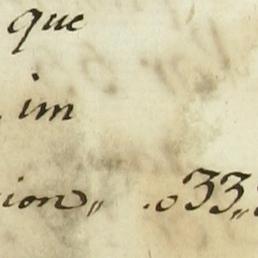 que
im
ion,, .033,,